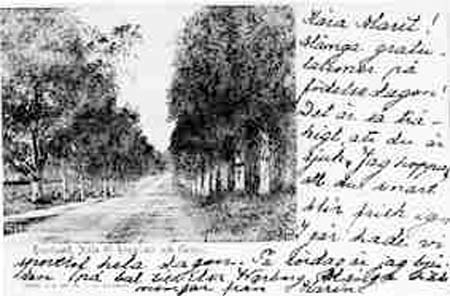 Kära Marit!
Många gratu-
lationer på
födelsedagen!
Det är så trå-
kigt att du är
sjuk. Jag hoppas
att du snart
blir frisk igen
I går hade vi
sportlof hela dagen. På lördag är jag bju-
den på bal
Många häls-
ningar från Karin